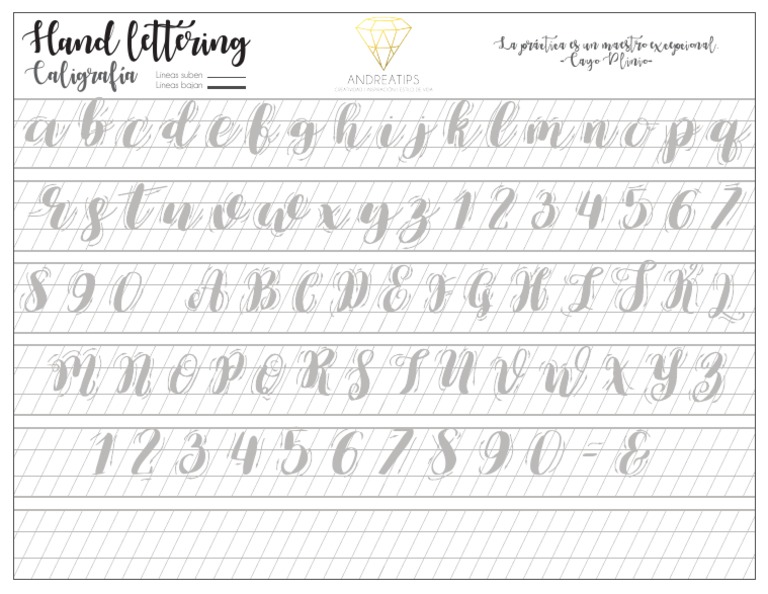 Hand lettering
Caligrafía
Lineas suben
Lineas bajan
ANDREATIPS
CREATIVIDAD | INSPIRACIÓN | ESTILO DE VIDA
La práctica es un maestro excepcional.
-Cayo Plinio-
a b c d e f g h i j k l m n o p q
r s t u v w x y z 1 2 3 4 5 6 7
8 9 0 A B C D E F G H I J K L
M N O P Q R S T U V W X Y Z
1 2 3 4 5 6 7 8 9 0 = &